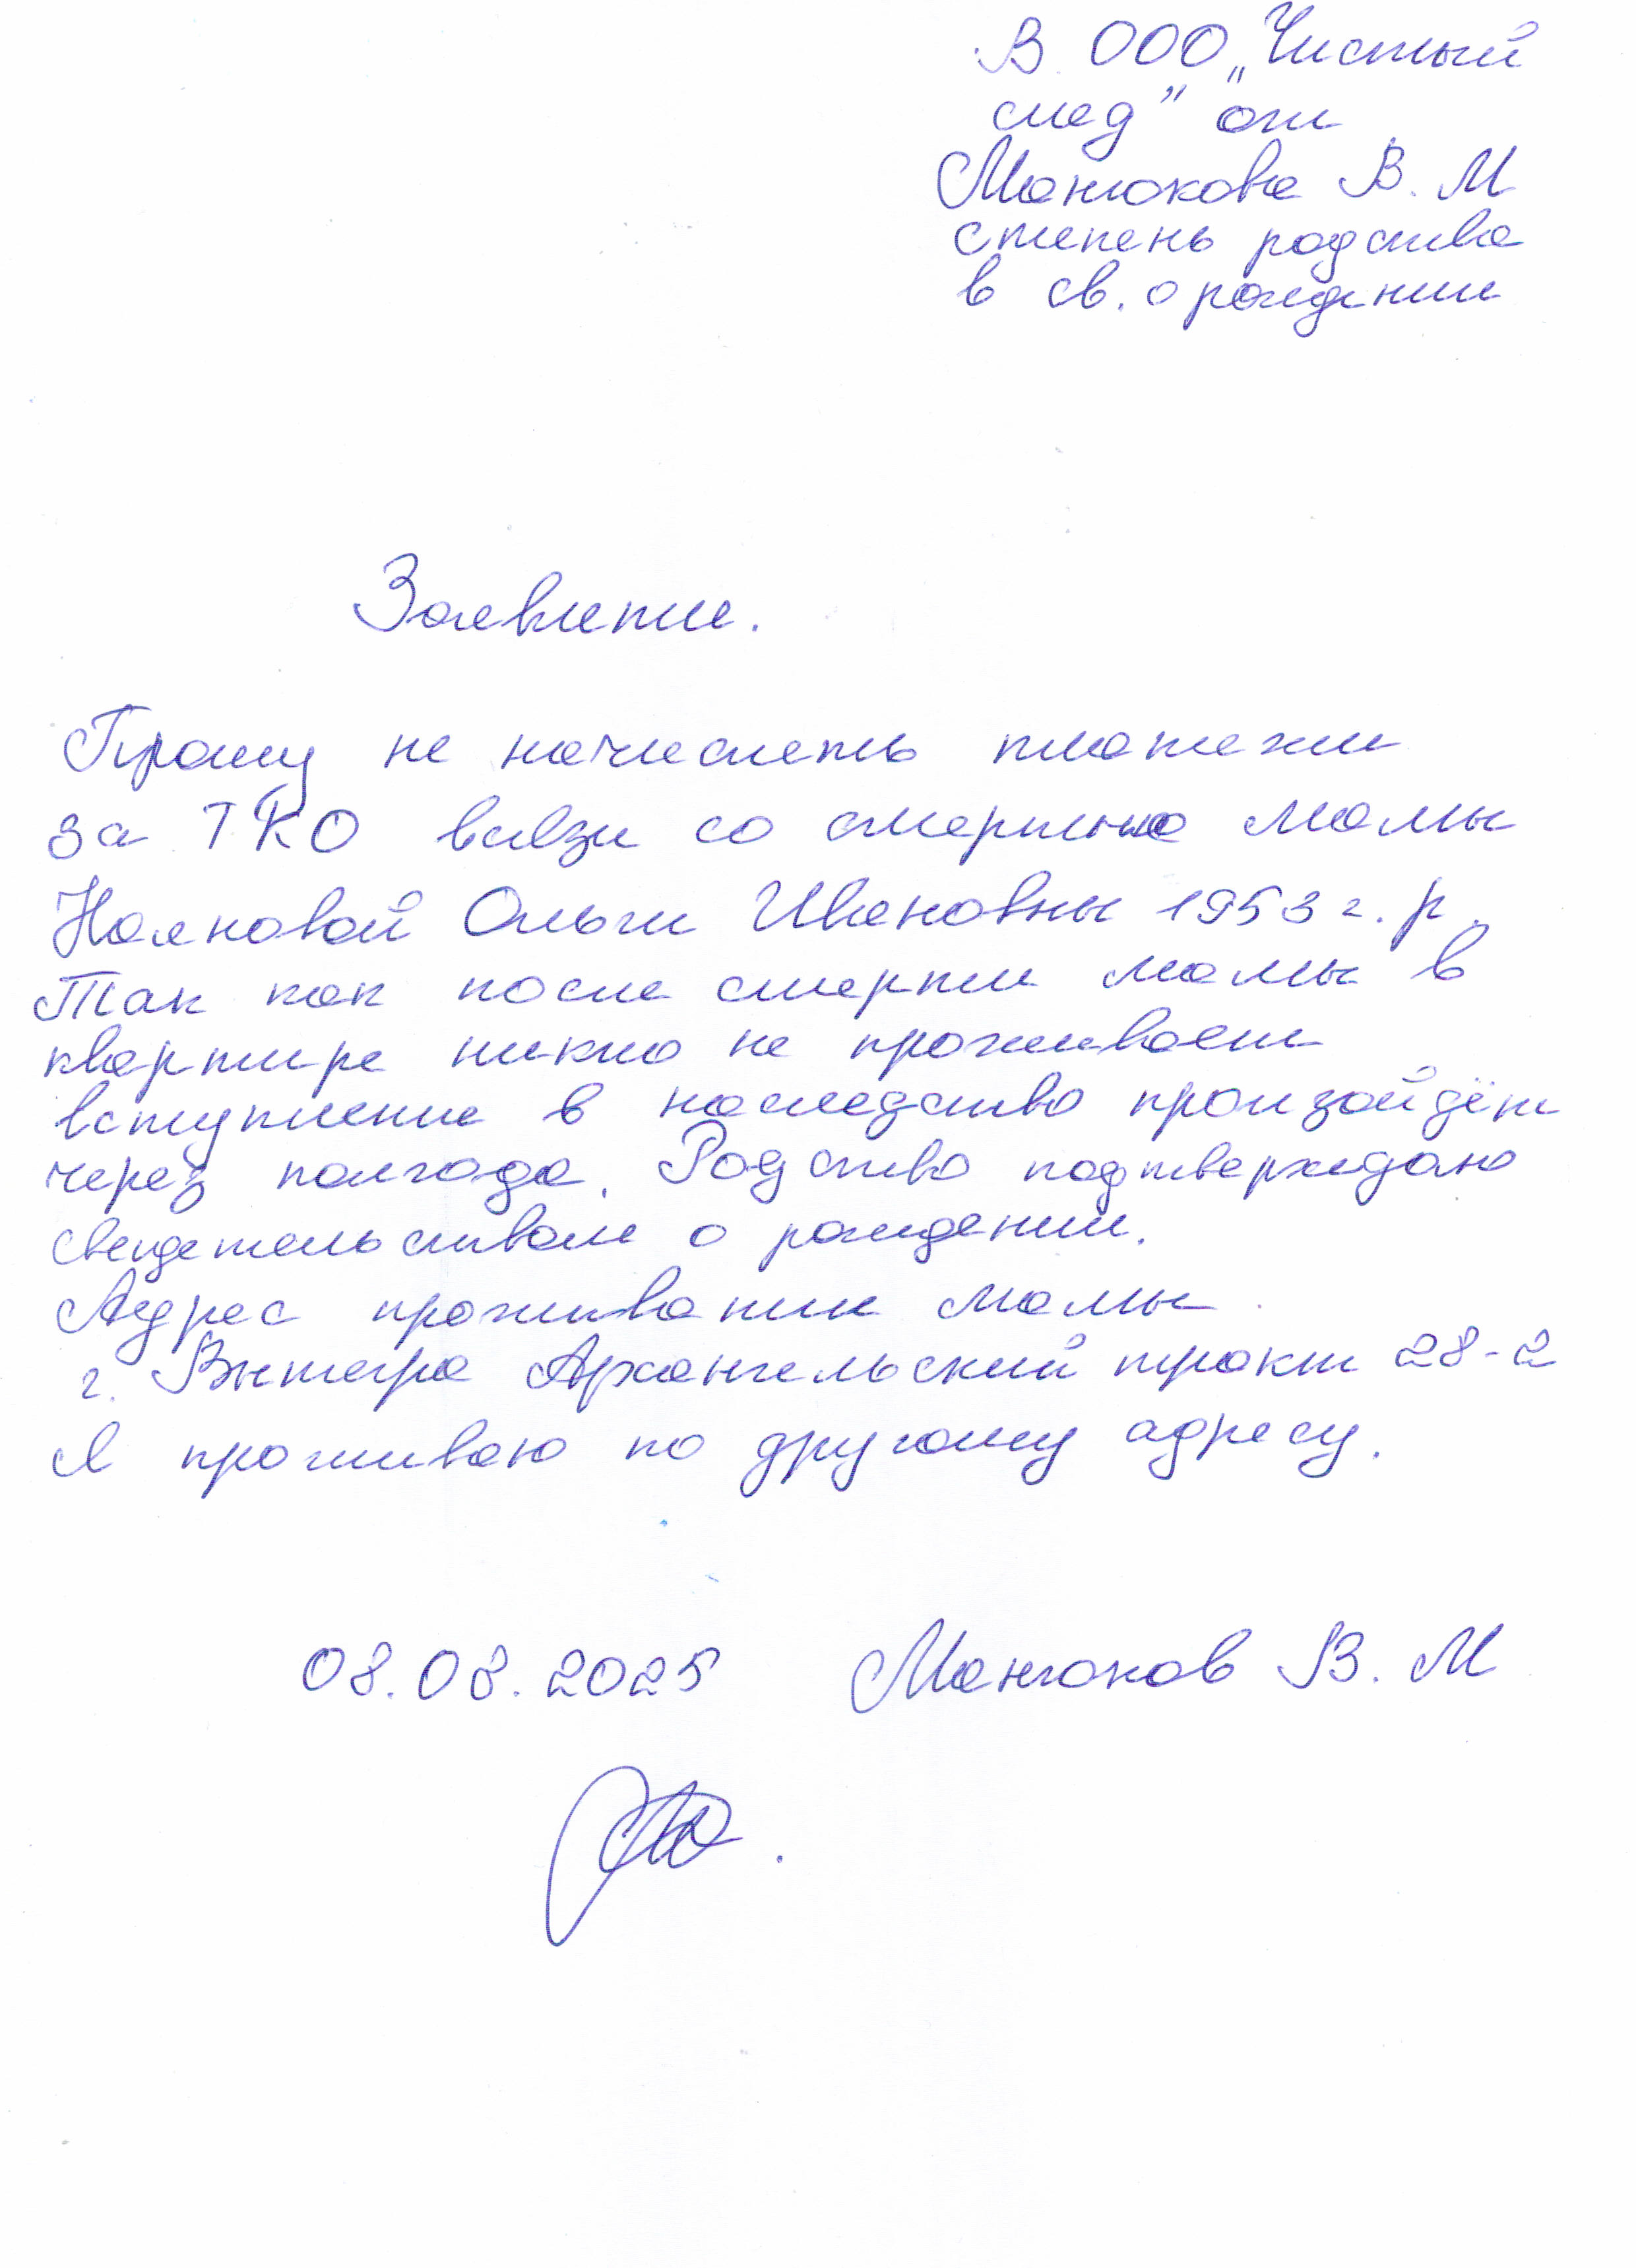 В ООО „Чистый
след” от
Манюкова В. М
степень родства
в св. о рождении
Заявление.
Прошу не начислять платежи
за ТКО всвязи со смертью мамы
Ольги Ивановны 1953 г. р.
Так как после смерти мамы в
квартире никто не проживает
вступление в наследство произойдёт
через полгода. Родство подтверждаю
свидетельством о рождении.
Адрес проживания мамы
г. Вытегра Архангельский тракт 28-2
Я проживаю по другому адресу.
08.08.2025 Манюков В. М